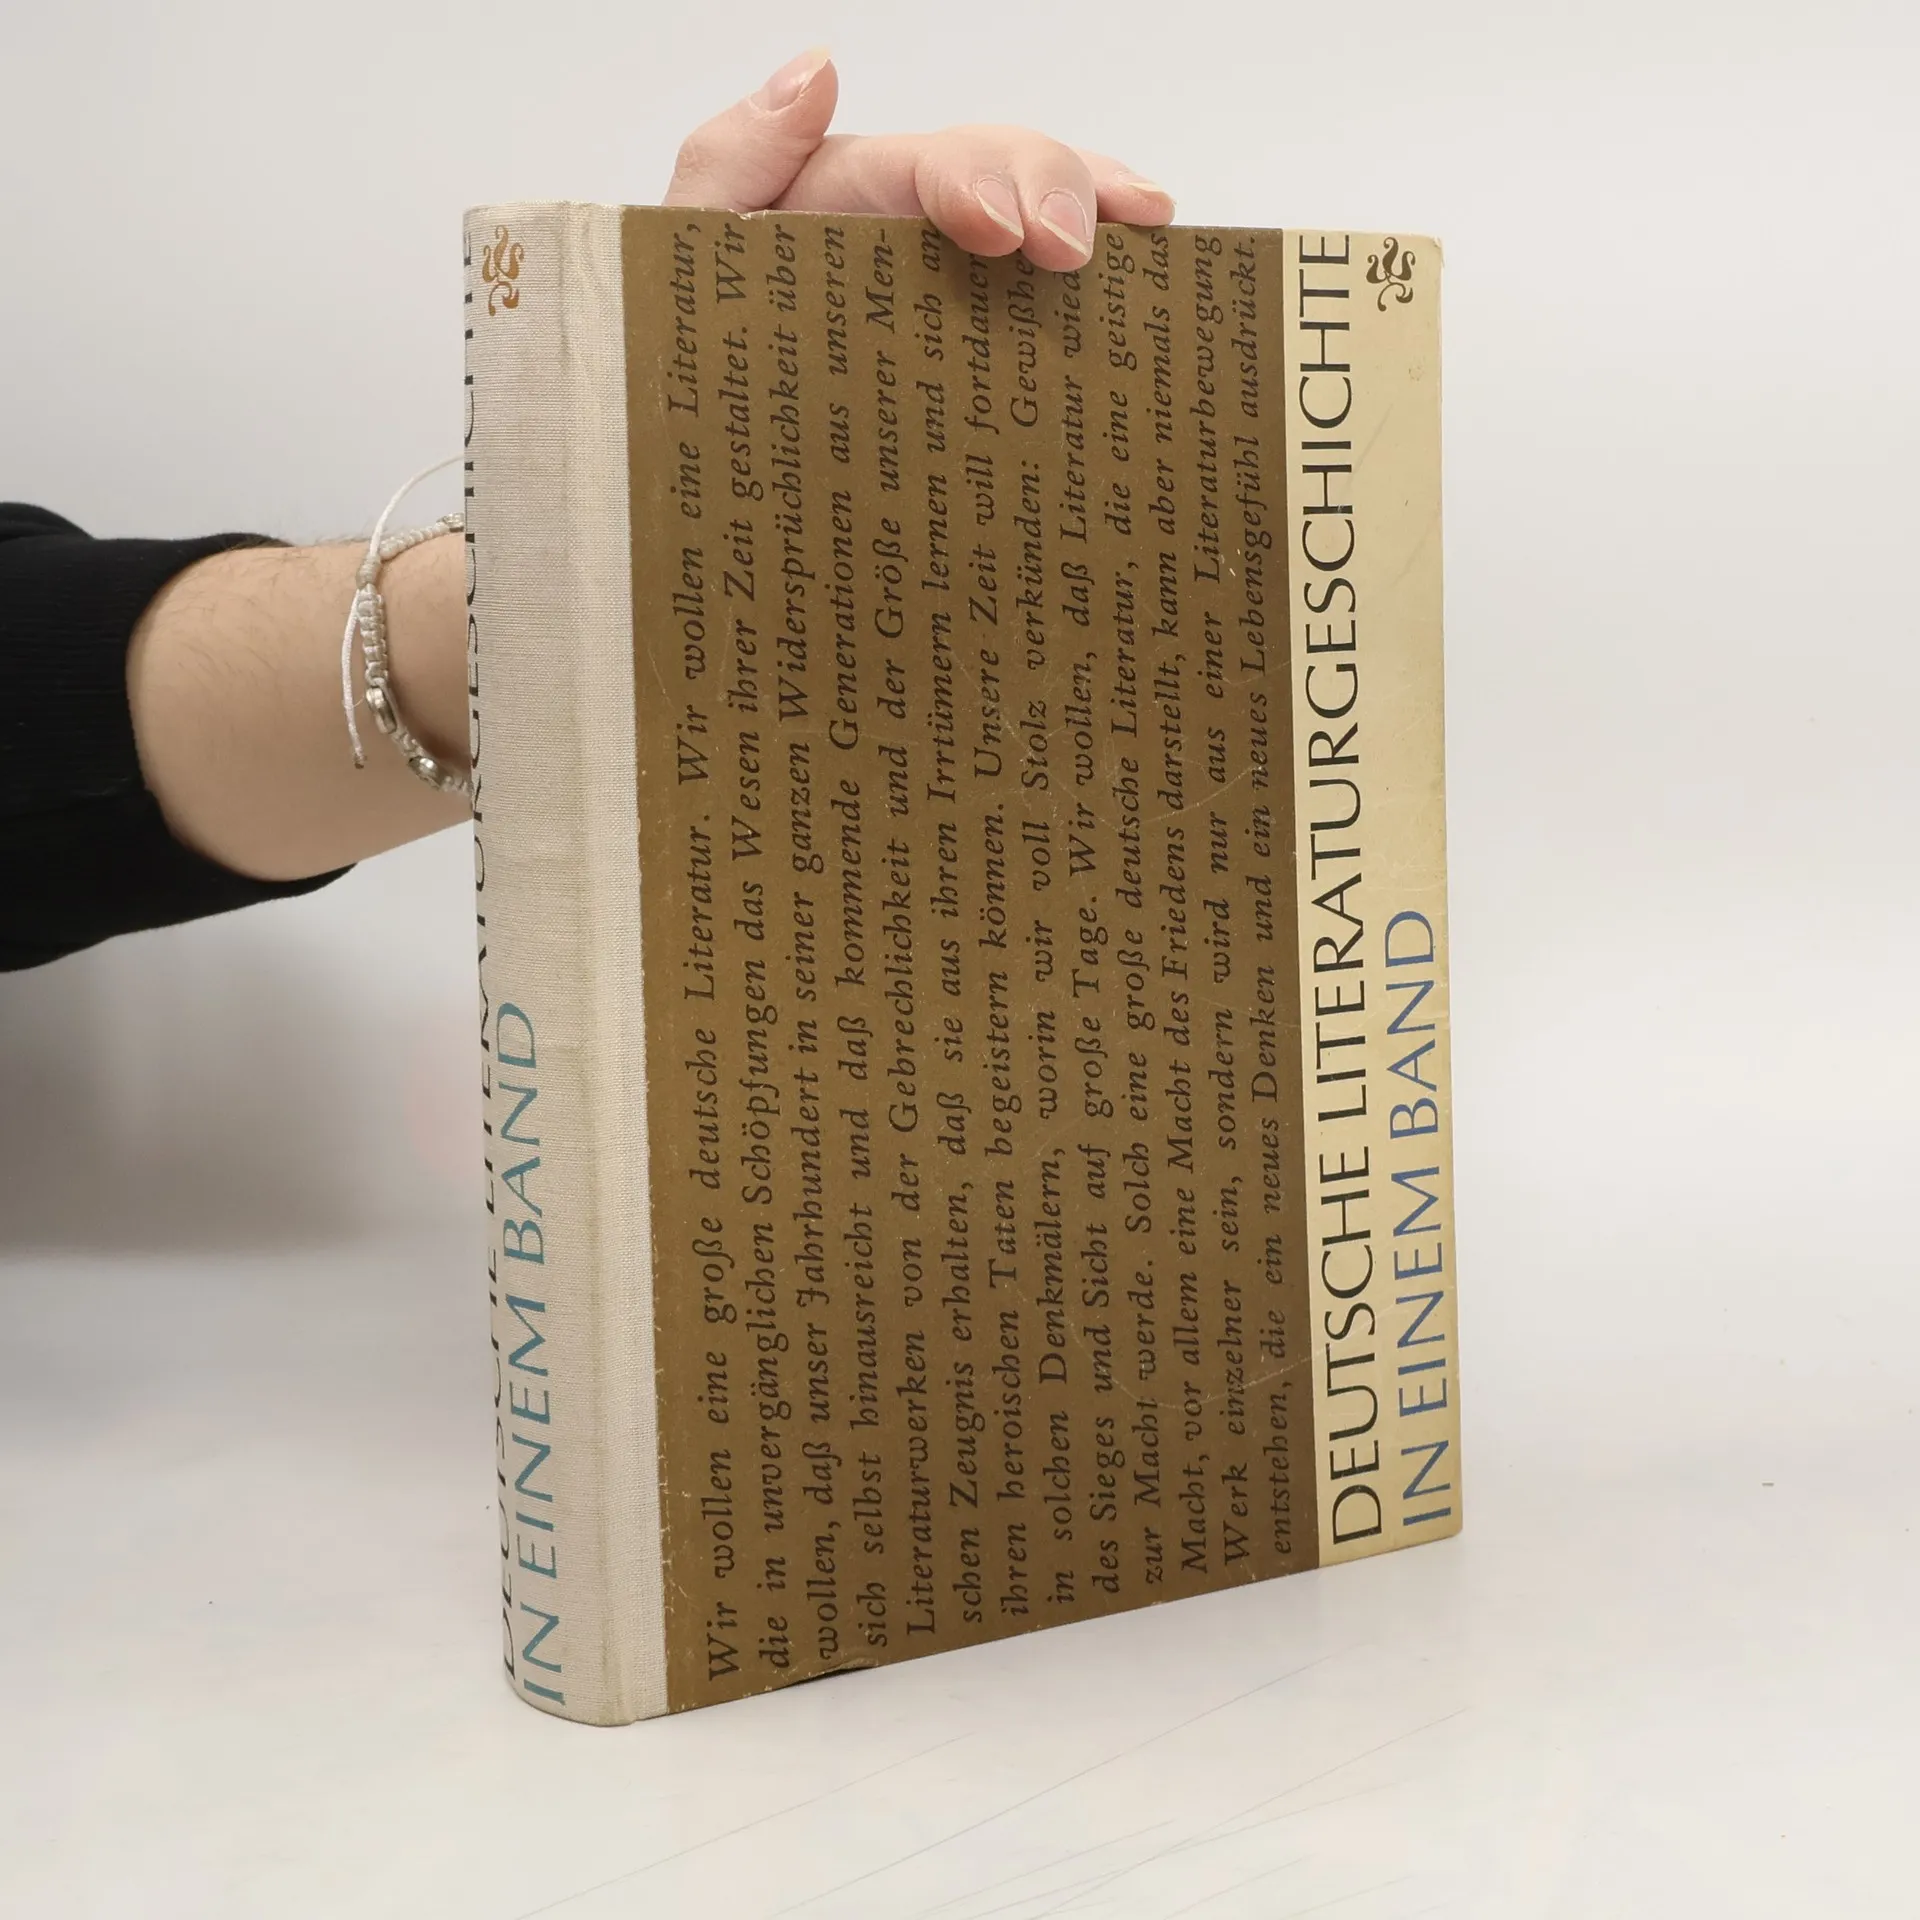 DEUTSCHE LITERATURGESCHICHTE
IN EINEM BAND
Wir wollen eine große deutsche Literatur. Wir wollen eine Literatur,
die in unvergänglichen Schöpfungen das Wesen ihrer Zeit gestaltet. Wir
wollen, daß unser Jahrhundert in seiner ganzen Widersprüchlichkeit über
sich selbst hinausreicht und daß kommende Generationen aus unseren
Literaturwerken von der Gebrechlichkeit und der Größe unserer Men-
schen Zeugnis erhalten, daß sie aus ihren Irrtümern lernen und sich an
ihren heroischen Taten begeistern können. Unsere Zeit will fortdauern
in solchen Denkmälern, worin wir voll Stolz verkünden: Gewißhe
des Sieges und Sicht auf große Tage. Wir wollen, daß Literatur wied
zur Macht werde. Solch eine große deutsche Literatur, die eine geistige
Macht, vor allem eine Macht des Friedens darstellt, kann aber niemals das
Werk einzelner sein, sondern wird nur aus einer Literaturbewegung
entstehen, die ein neues Denken und ein neues Lebensgefühl ausdrückt.
DEUTSCHE LITERATURGESCHICHTE
IN EINEM BAND